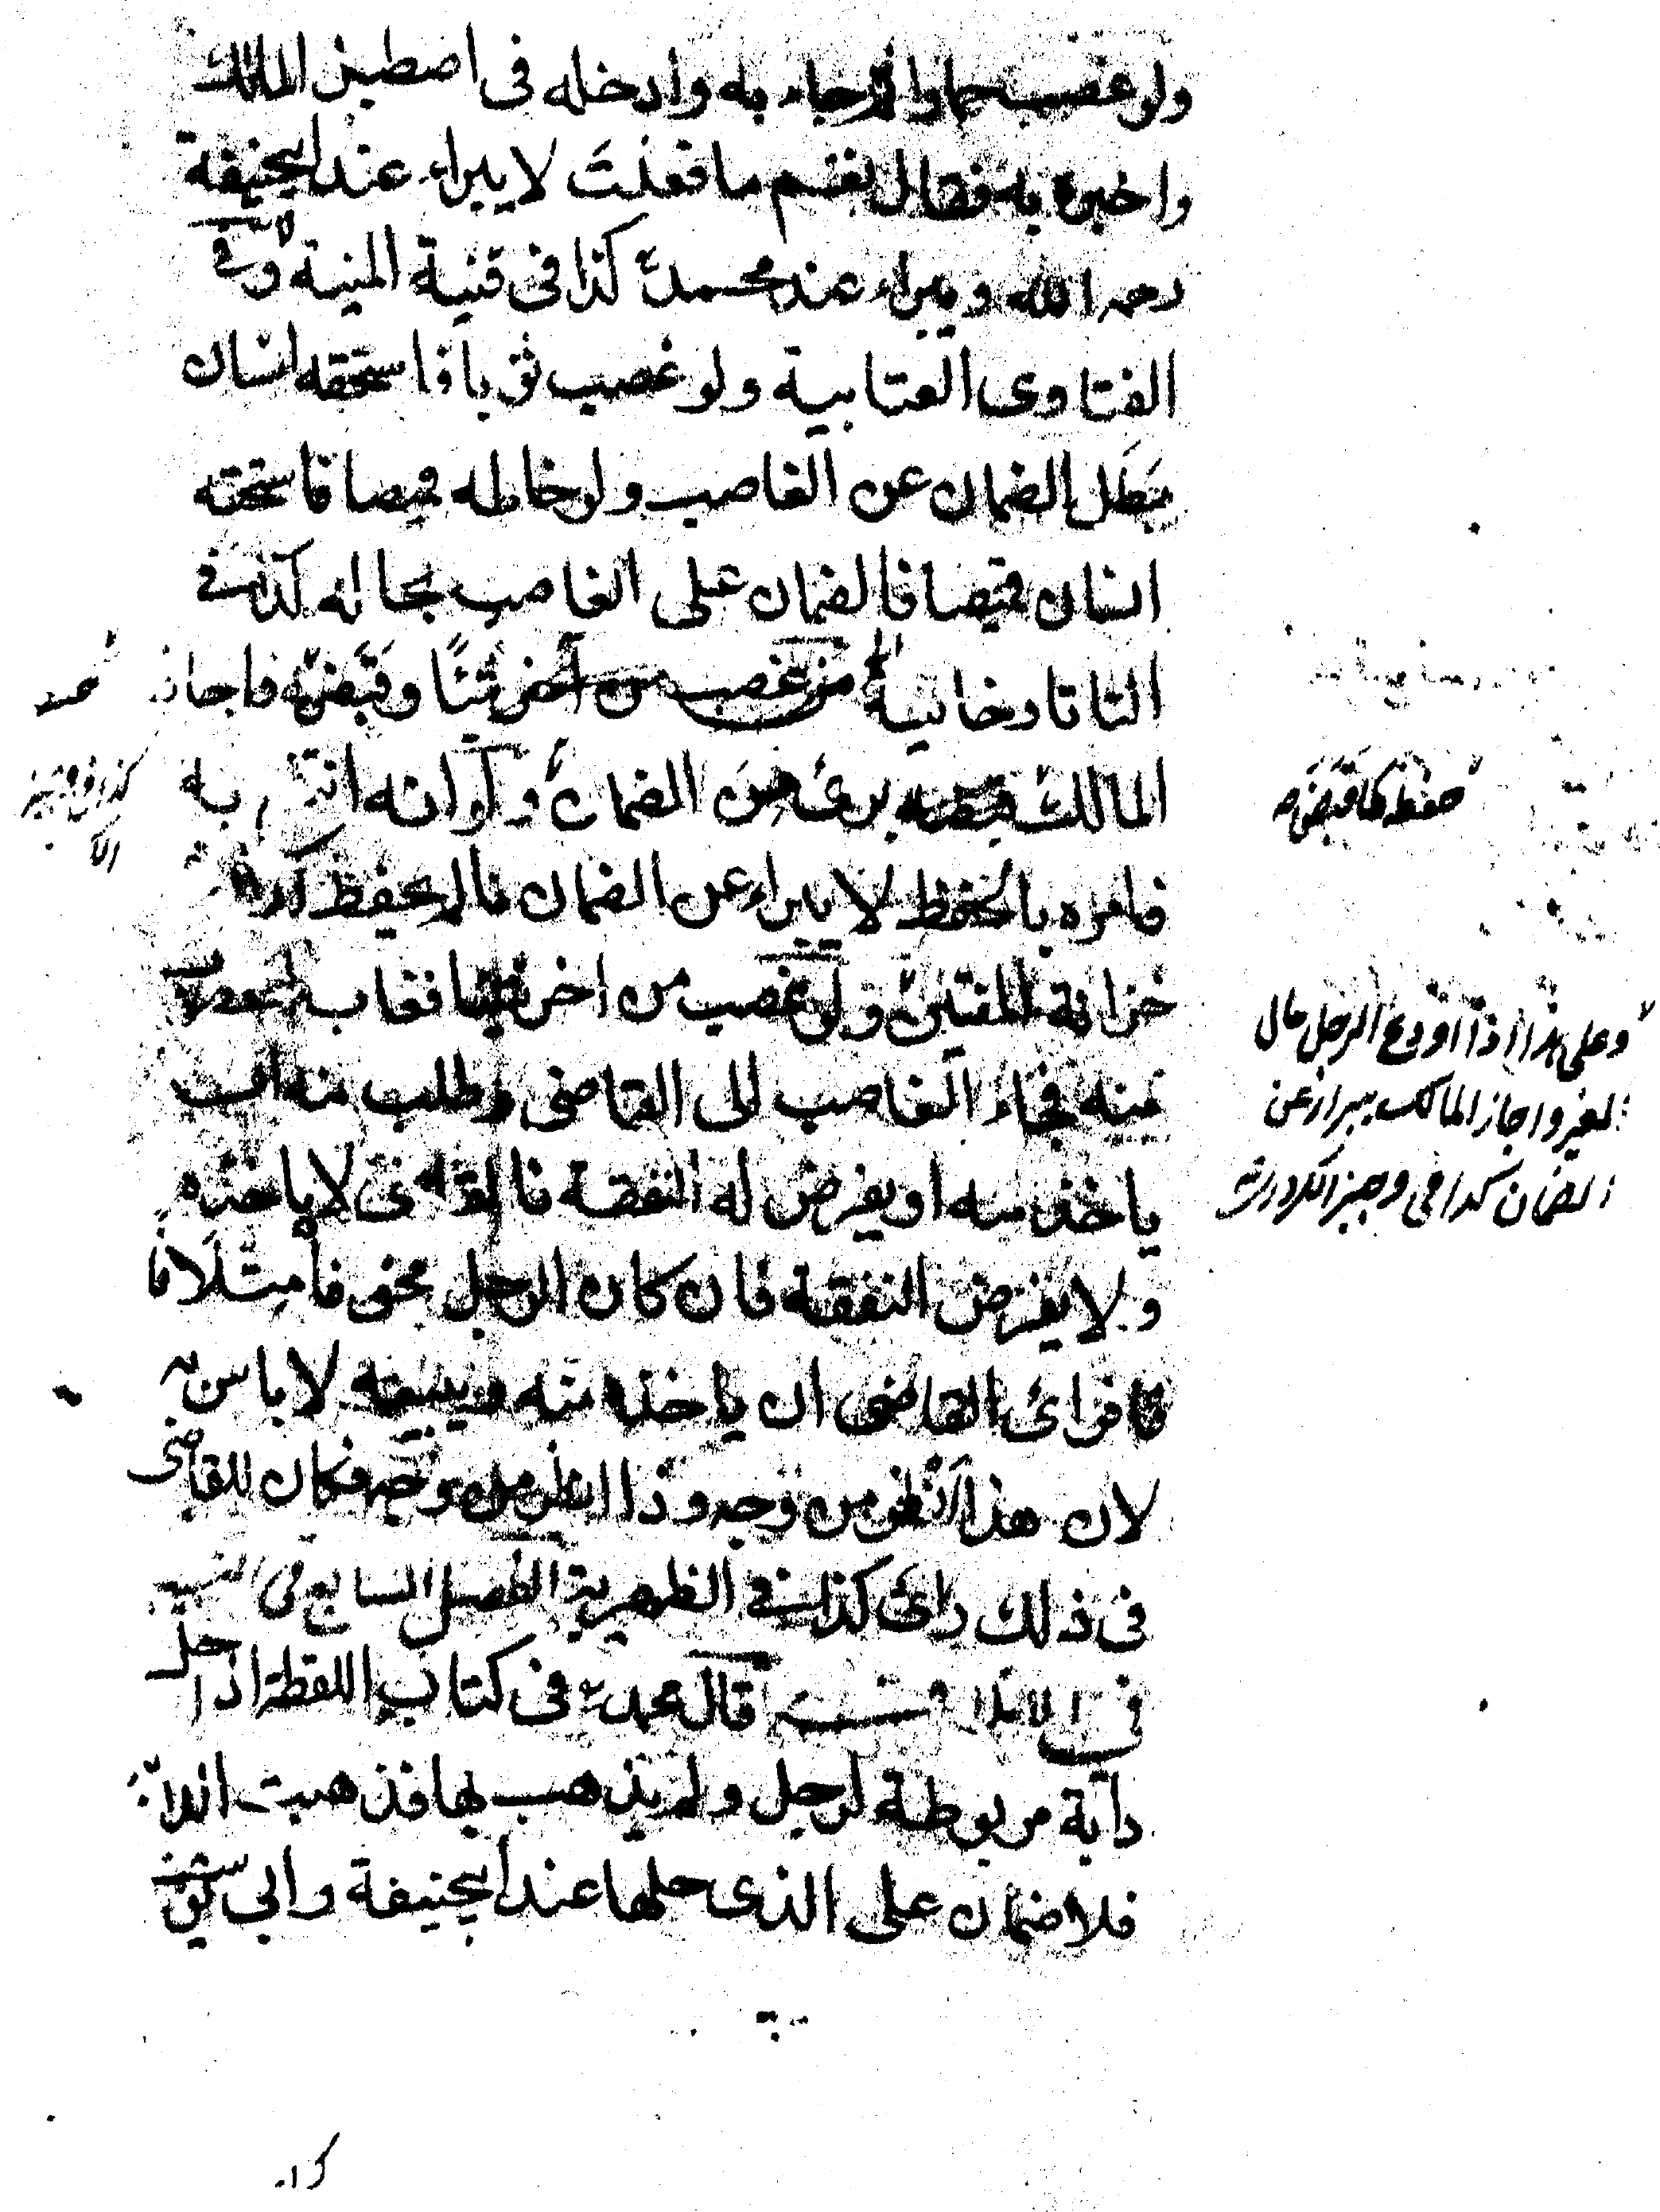 ولو غصب حمارا ثم جاء به وادخله فى اصطبل المالك
واخبره به فقال نعم ما فعلت لا يبراء عند ابيحنيفة
رحمه الله ويبراء عند محمد كذا فى قنية المنية وفى
الفتاوى العتابية ولو غصب ثوبا فاستحقه انسان
يبطل الضمان عن الغاصب ولو خاطه قميصا فاستحقه
انسان قميصا فالضمان على الغاصب بحاله كذا فى
التاتارخانية من غصب من آخر شيئا وقبضه فاجاز
المالك قبضه برئ من الضمان ولو انه انتفع به
فامره بالحفظ لا يبراء عن الضمان مالم يحفظ كذا فى
خزانة المفتين ولو غصب من اخر شيئا فغاب المغصوب
منه فجاء الغاصب الى القاضى وطلب منه ان
ياخذ منه او يفرض له النفقة فالقاضى لا ياخذه
ولا يفرض النفقة فان كان الرجل مخوفا متلافا
فراى القاضى ان ياخذه منه ويبيعه لا باس به
لان هذا انظر من وجه وذا انظر من وجه فكان للقاضى
فى ذلك راى كذا فى الظهيرية الفصل السابع فى
فى قال محمد فى كتاب اللقطة اذا حل
دابة مربوطة لرجل ولم يذهب بها فذهبت الدابة
فلا ضمان على الذى حلها عند ابيحنيفة وابى يوسف
حفظه كما قبضه
وعلى هذا اذا اودع الرجل مال
الغير واجاز المالك يبراء عن
الضمان كذا فى وجيز الكردرى